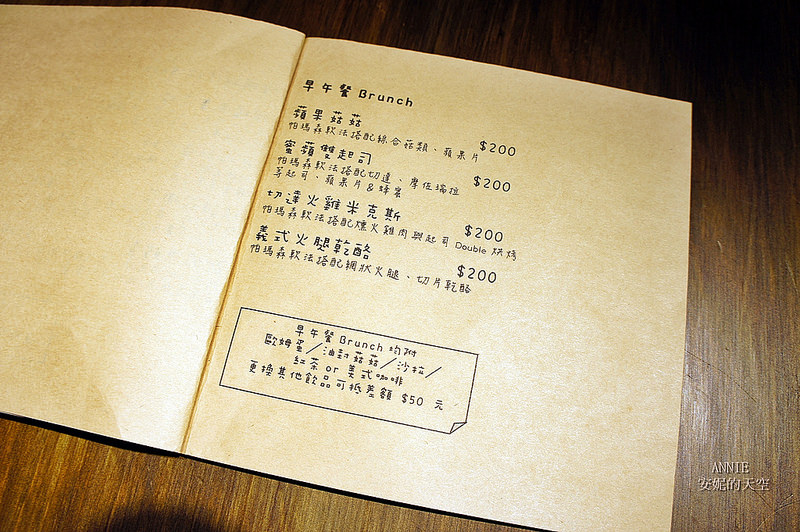 早午餐 Brunch
蘋果菇菇 $200
帕瑪森軟法搭配綜合菇類、蘋果片
蜜蘋雙起司 $200
帕瑪森軟法搭配切達、摩佐瑞拉
等起司、蘋果片&蜂蜜
切達火雞米克斯 $200
帕瑪森軟法搭配燻火雞肉與起司 Double 烘烤
義式火腿乾酪 $200
帕瑪森軟法搭配網狀火腿、切片乾酪
早午餐 Brunch 均附
歐姆蛋/油封菇菇/沙拉/
紅茶 or 美式咖啡
更換其他飲品可抵差額 $50 元
ANNIE
安妮的天空